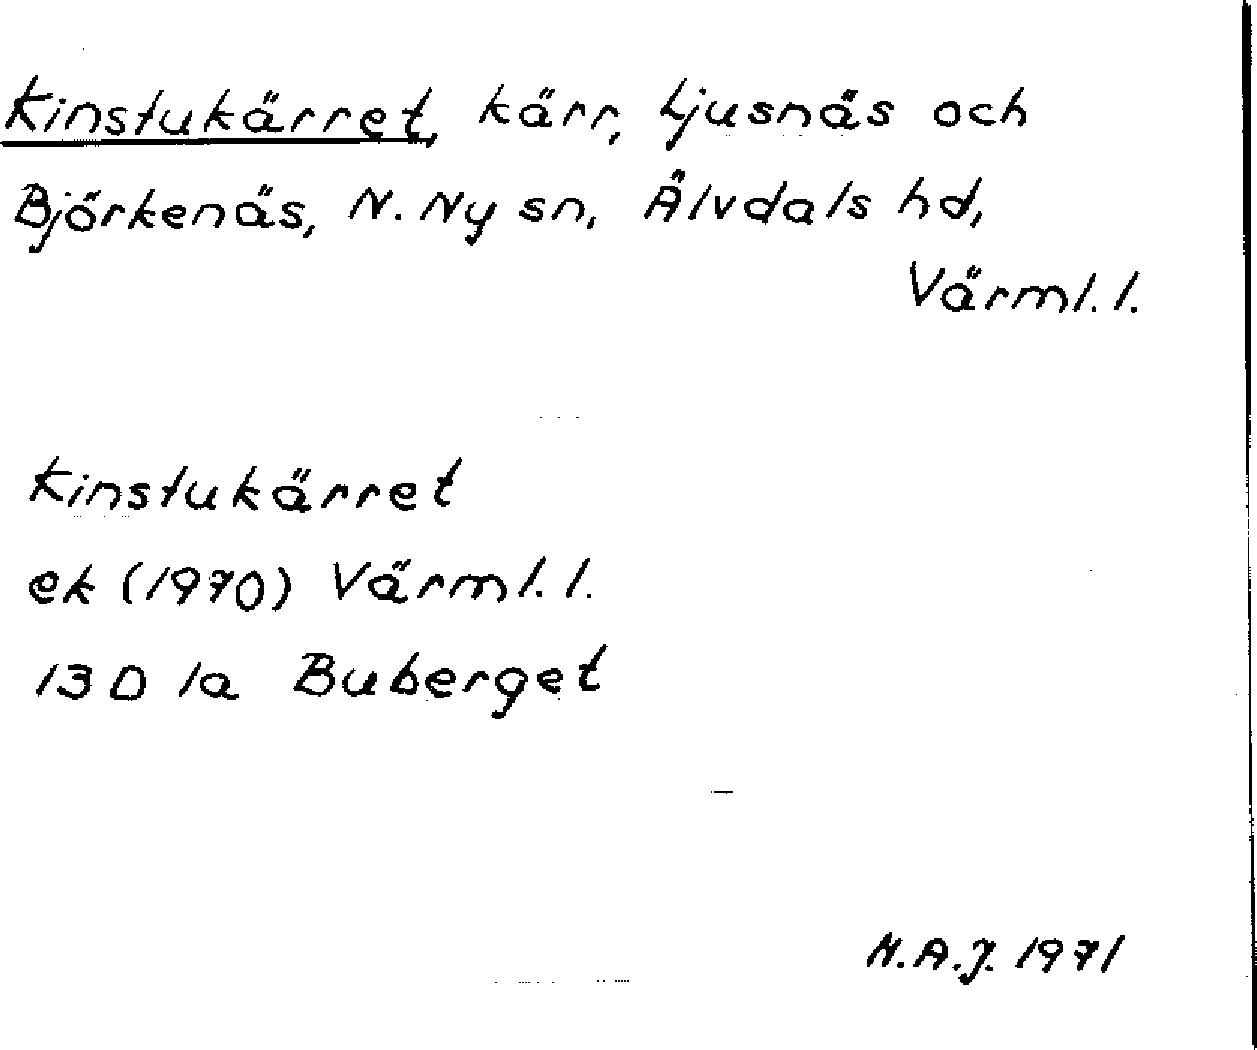 Kinstukärret, kärr, Ljusnäs och
Björkenäs, N. Ny sn, Älvdals hd,
Värml. l.
Kinstukärret
ek (1970) Värml. l.
13 D 1a Buberget
M.A.J. 1971